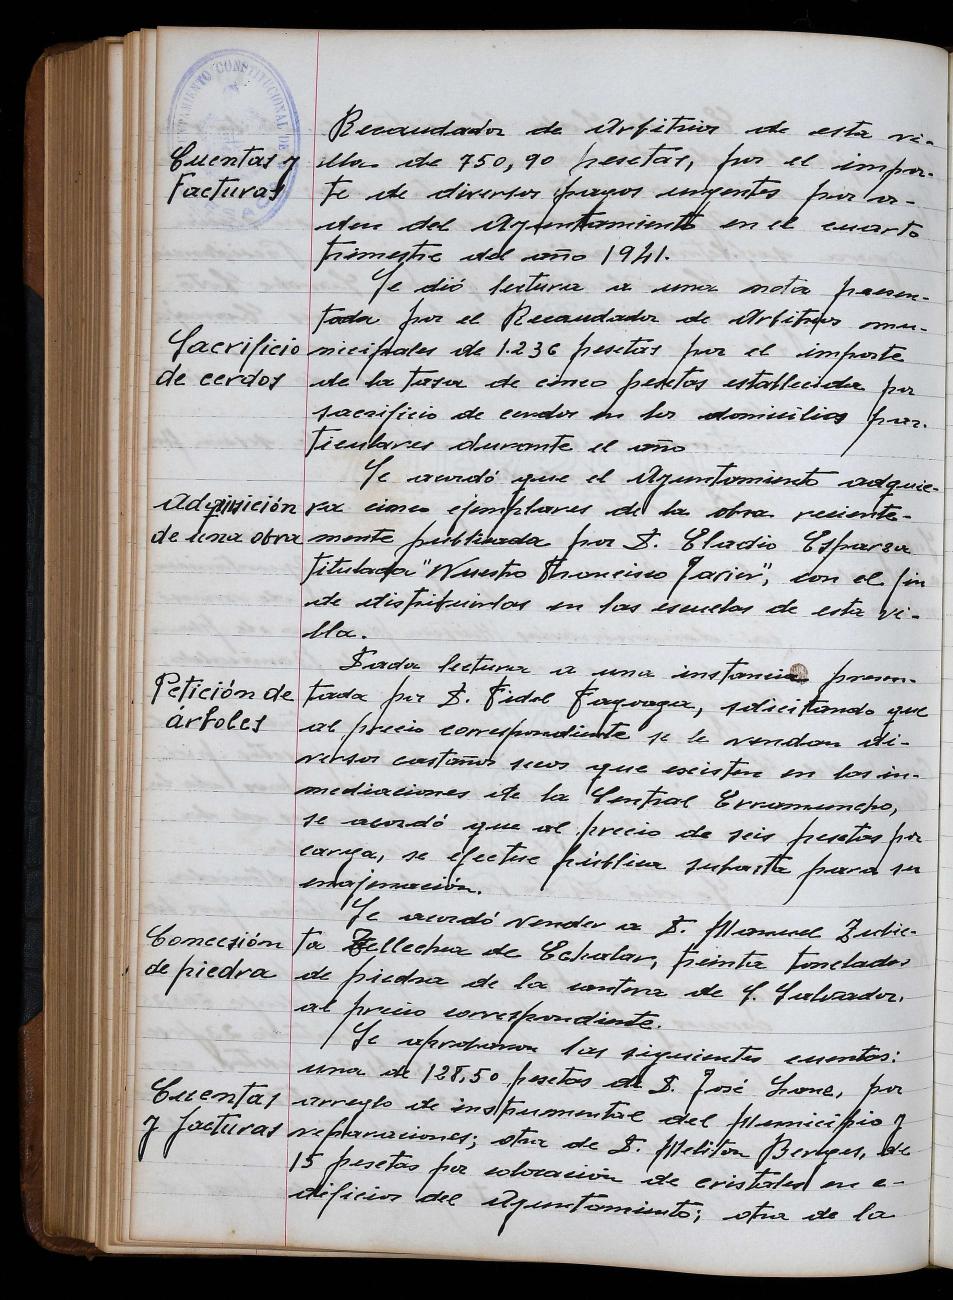 AYUNTAMIENTO CONSTITUCIONAL DE
Recaudador de Arbitrios de esta vi-
Cuentas y
Facturas
lla de 750,90 pesetas, por el impor-
te de diversos pagos urgentes por or-
den del Ayuntamiento en el cuarto
trimestre del año 1941.
Se dió lectura a una nota presen-
tada por el Recaudador de Arbitrios mu-
Sacrificio
de cerdos
nicipales de 1.236 pesetas por el importe
de la tasa de cinco pesetas establecida por
sacrificio de cerdos en los domicilios par-
ticulares durante el año
Se acordó que el Ayuntamiento adquie-
Adquisición
de una obra
ra cinco ejemplares de la obra reciente-
mente publicada por D. Eladio Esparza
titulada "Nuestro Francisco Javier", con el fin
de distribuirlos en las escuelas de esta vi-
lla.
Dada lectura a una instancia presen-
Petición de
árboles
tada por D. Fidel Fagoaga, solicitando que
al precio correspondiente se le vendan di-
versos castaños secos que existen en las in-
mediaciones de la Central
se acordó que al precio de seis pesetas por
carga, se efectue pública subasta para su
enajenación.
Se acordó vender a D. Manuel Zubie-
Concesión
de piedra
ta Tellechea de Echalar, treinta toneladas
de piedra de la cantera de S. Salvador,
al precio correspondiente.
Se aprobaron las siguientes cuentas:
una de 128,50 pesetas de D. José por
Cuentas
y facturas
arreglo de instrumental del Municipio y
reparaciones; otra de D. Meliton de
15 pesetas por colocación de cristales en e-
dificios del Ayuntamiento; otra de la